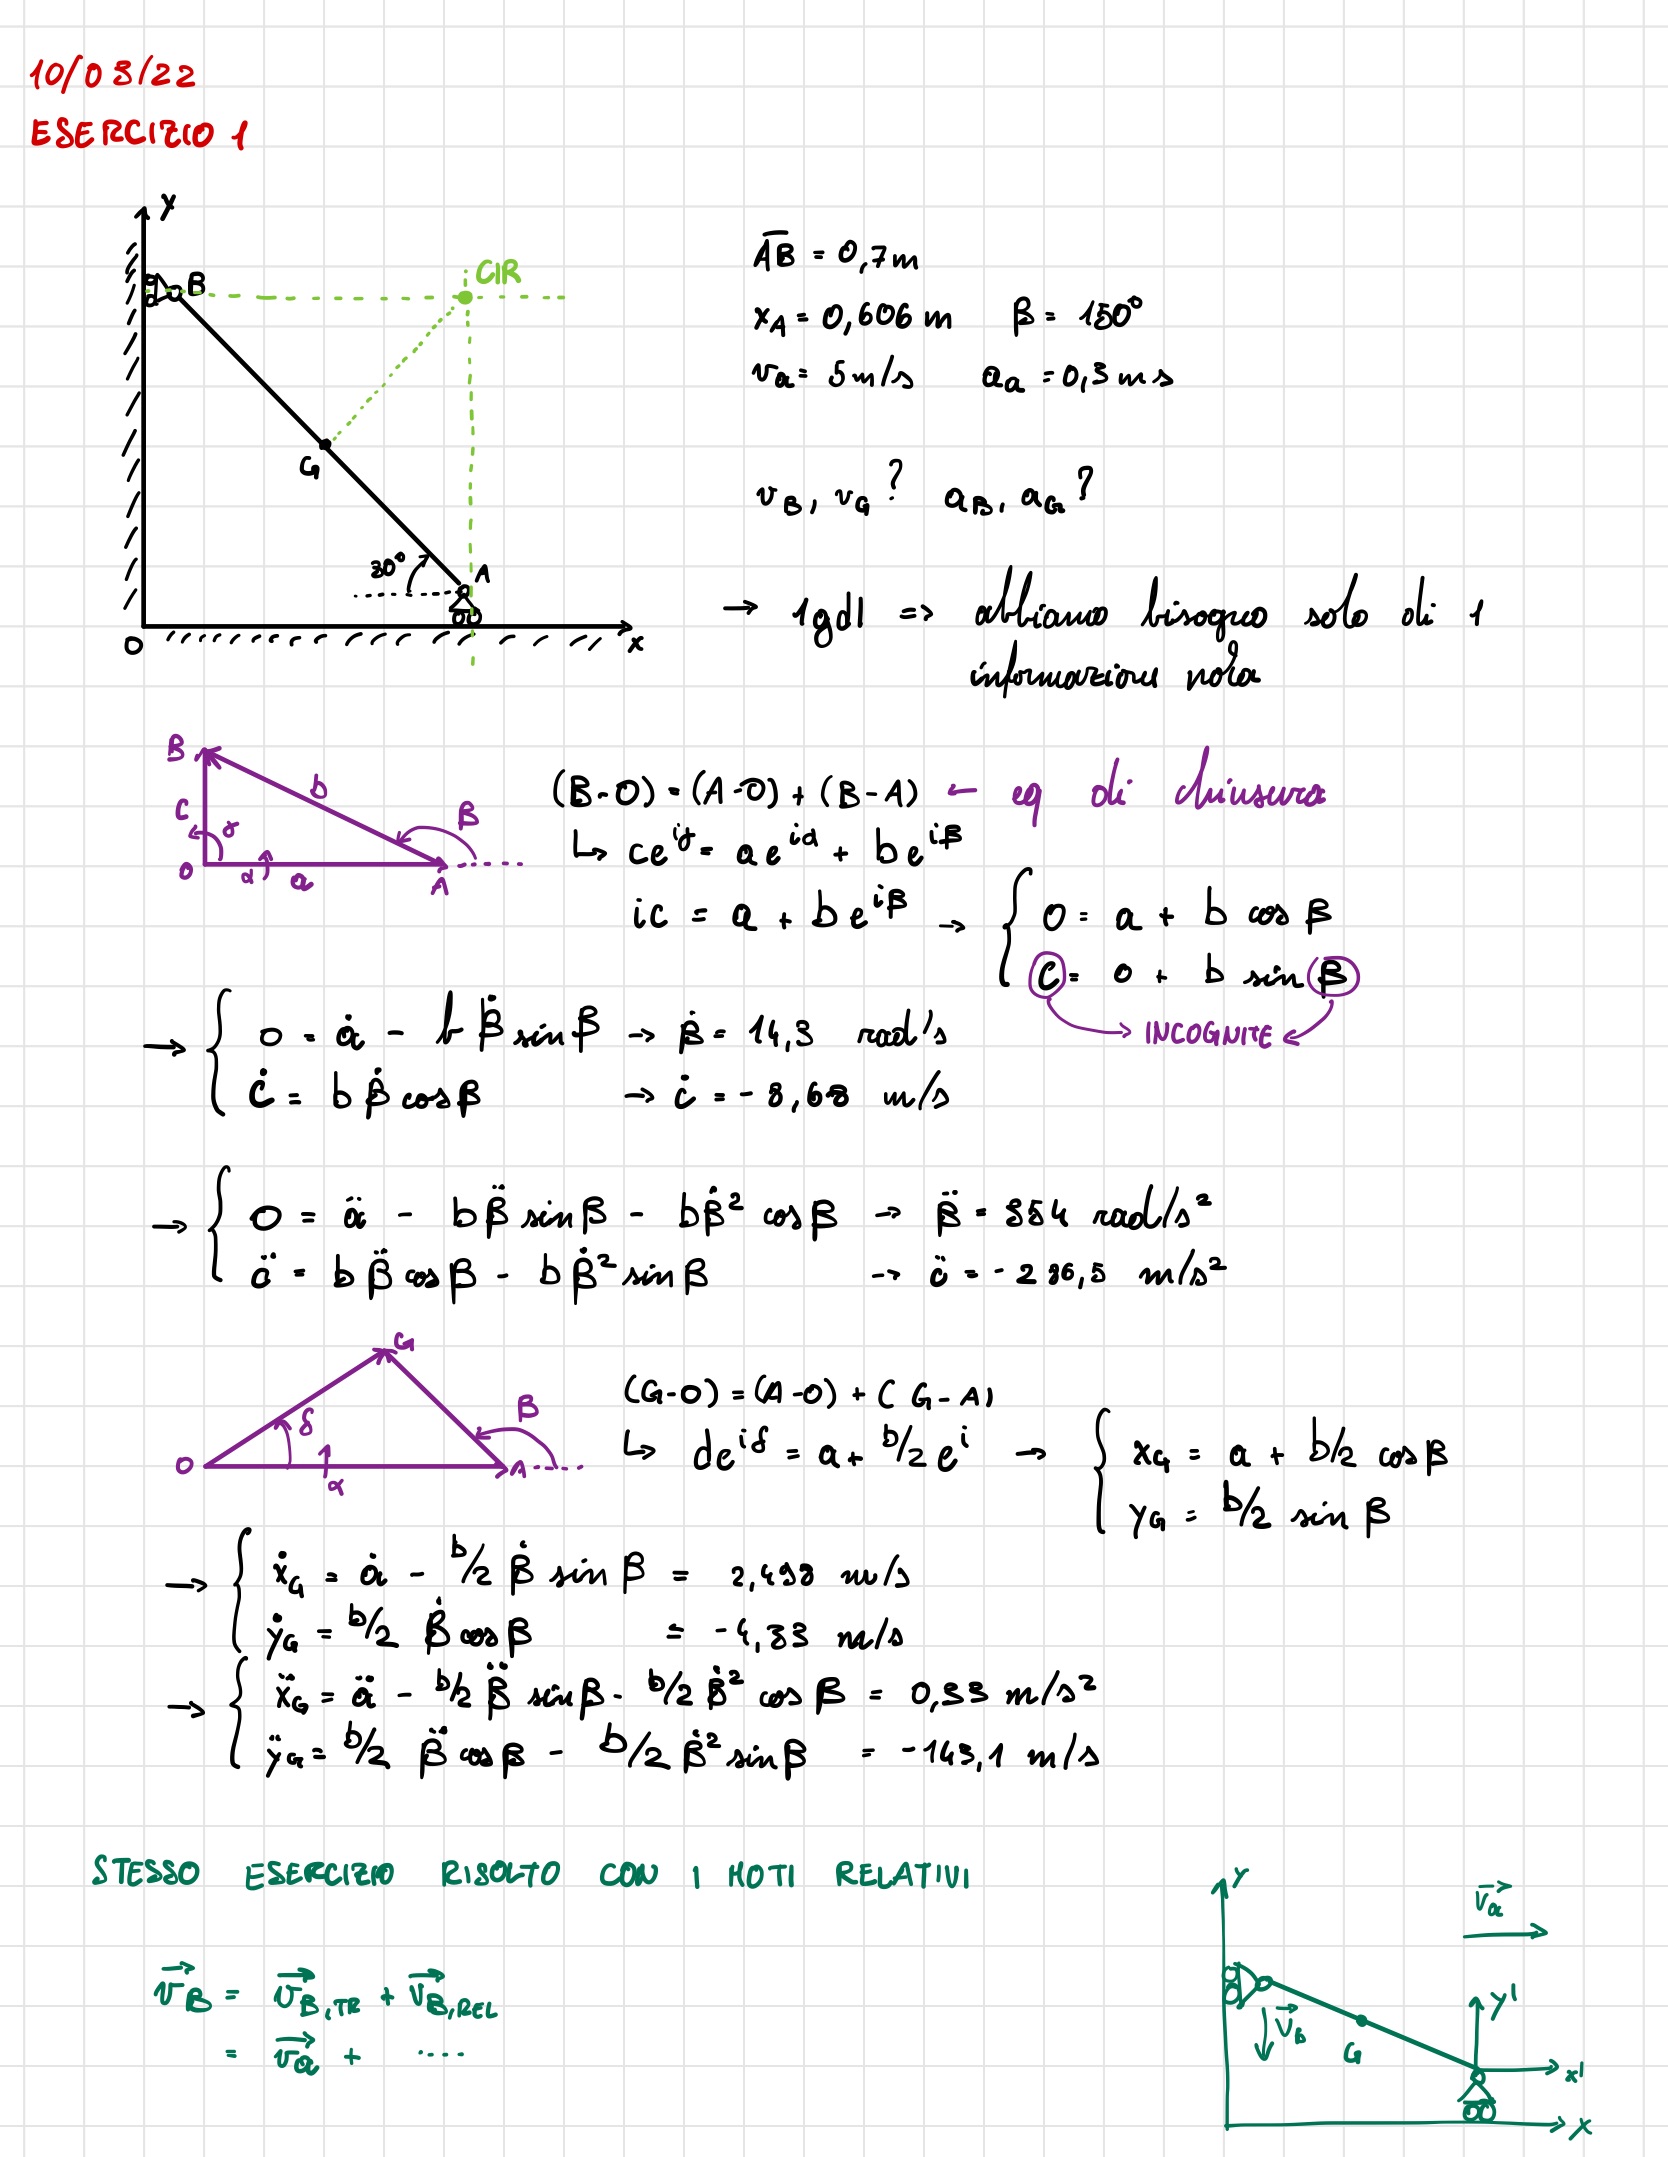 10/03/22
ESERCIZIO 1
y
B
CIR
G
30°
A
O
x
AB = 0,7 m
xA = 0,606 m β = 150°
va = 5 m/s aa = 0,3 m s
vB, vG? aB, aG?
→ 1gdl => abbiamo bisogno solo di 1
informazione nota
B
b
c
γ
β
O
α
a
A
(B-O) = (A-O) + (B-A) ← eq di chiusura
↳ ce^iγ = ae^iα + be^iβ
ic = a + be^iβ → { 0 = a + b cos β
c = 0 + b sin β
INCOGNITE
→ { 0 = ȧ - b β̇ sin β → β̇ = 14,3 rad/s
ċ = b β̇ cos β → ċ = -8,68 m/s
→ { 0 = ä - b β̈ sin β - b β̇² cos β → β̈ = 354 rad/s²
c̈ = b β̈ cos β - b β̇² sin β → c̈ = -286,5 m/s²
G
δ
β
O
α
A
(G-O) = (A-O) + (G-A)
↳ de^iδ = a + b/2 e^i → { xG = a + b/2 cos β
yG = b/2 sin β
→ { ẋG = ȧ - b/2 β̇ sin β = 2,498 m/s
ẏG = b/2 β̇ cos β = -4,33 m/s
→ { ẍG = ä - b/2 β̈ sin β - b/2 β̇² cos β = 0,33 m/s²
ÿG = b/2 β̈ cos β - b/2 β̇² sin β = -143,1 m/s
STESSO ESERCIZIO RISOLTO CON I MOTI RELATIVI
vB = vB,TR + vB,REL
= va + ....
y
va
vB
G
y'
x'
x